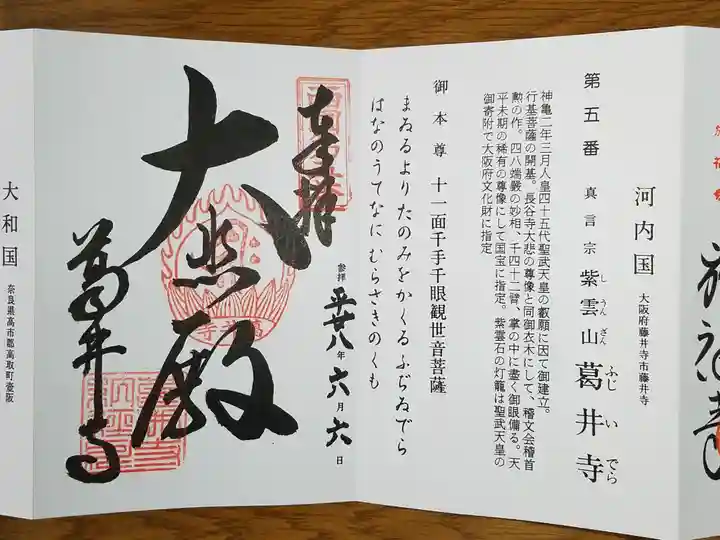 河内国 大阪府藤井寺市藤井寺
第五番 真言宗 紫雲山 葛井寺
し うん ざん ふじ い でら
神亀二年三月人皇四十五代聖武天皇の叡願に因て御建立。
行基菩薩の開基。長谷寺大悲の尊像と同御衣木にして、稽文会稽首
勲の作。四八端厳の妙相、千四十二臂、掌の中に盡く御眼備る。天
平末期の稀有の尊像にして国宝に指定。紫雲石の灯籠は聖武天皇の
御寄附で大阪府文化財に指定
御本尊 十一面千手千眼観世音菩薩
まゐるよりたのみをかくるふぢゐでら
はなのうてなにむらさきのくも
奉拝
参拝 平廿八年六月六日
大悲殿
葛井寺
大和国 奈良県高市郡高取町壷阪